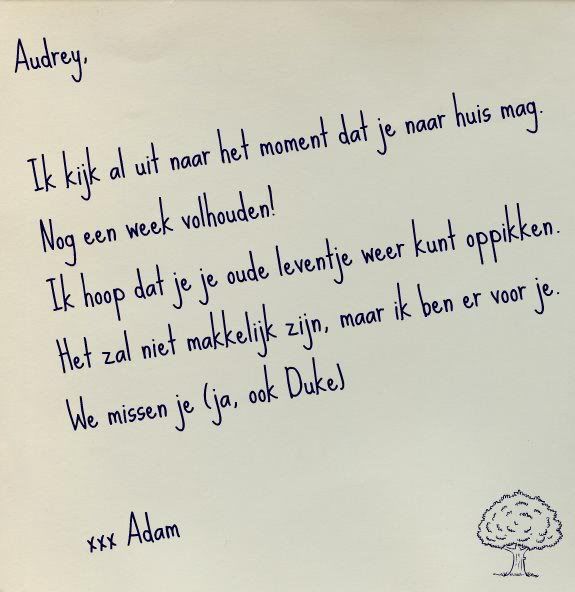 Audrey,
Ik kijk al uit naar het moment dat je naar huis mag.
Nog een week volhouden!
Ik hoop dat je je oude leventje weer kunt oppikken.
Het zal niet makkelijk zijn, maar ik ben er voor je.
We missen je (ja, ook Duke)
xxx Adam